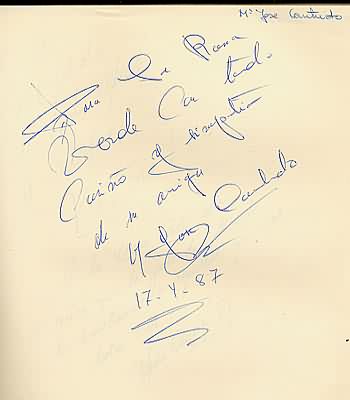 Mª Jose Cantudo
Para La Rana
Verde Con todo
Cariño y simpatía
de su amiga
Mª Jose Cantudo
17-4-87